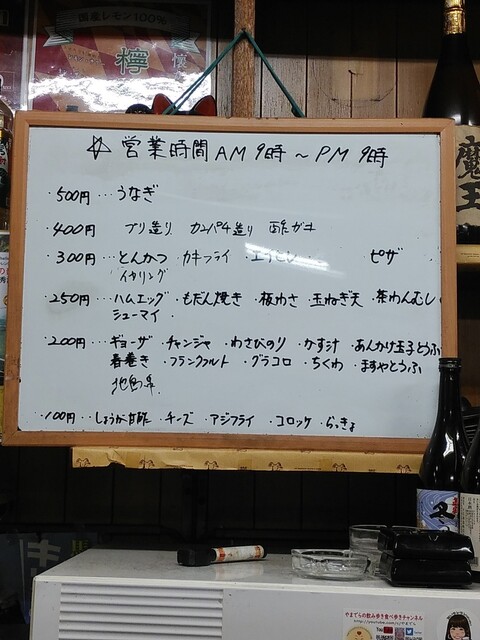 国産レモン100%
檸
☆ 営業時間 AM 9時 ~ PM 9時
・500円 … うなぎ
・400円 … ブリ造り カンパチ造り 酢ガキ
・300円 … とんかつ ・カキフライ ピザ
イカリング
・250円 … ハムエッグ ・もだん焼き ・板わさ ・玉ねぎ天 ・茶わんむし
シューマイ
・200円 … ギョーザ ・チャンジャ ・わさびのり ・かす汁 ・あんかけ玉子とうふ
春巻き ・フランクフルト ・グラコロ ・ちくわ ・ますやとうふ
・100円 … しょうが甘酢 ・チーズ ・アジフライ ・コロッケ ・らっきょ
魔王
冬
やまでらの飲み歩き食べ歩きチャンネル